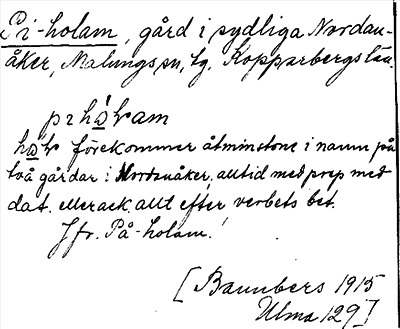 Pi-holam, gård i sydliga Nordan-
åker, Malungs sn, Kopparbergs län.
pɪhàɫam
hàɫ förekommer åtminstone i namn på
två gårdar i Nordanåker, alltid med prep med
dat. eller ack. allt efter verbets bet.
Jfr. På-holam!
[Bannbers 1915
Ulma 129]